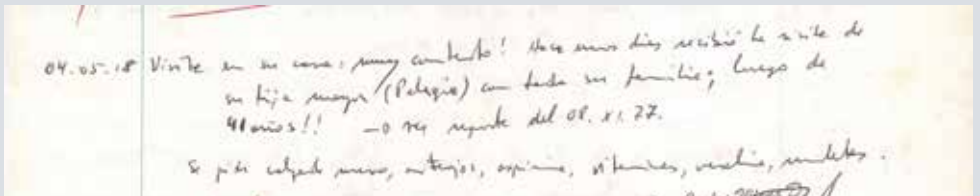 04.05.18 Visite en su casa: muy contento! Hace unos días recibió la visite de
su hija mayor (Pelagia) con toda su familia; luego de
41 años!! → ver reporte del 08.XI.77.
Se pide calzado nuevo, anteojos, aspirina, vitaminas, muletas.